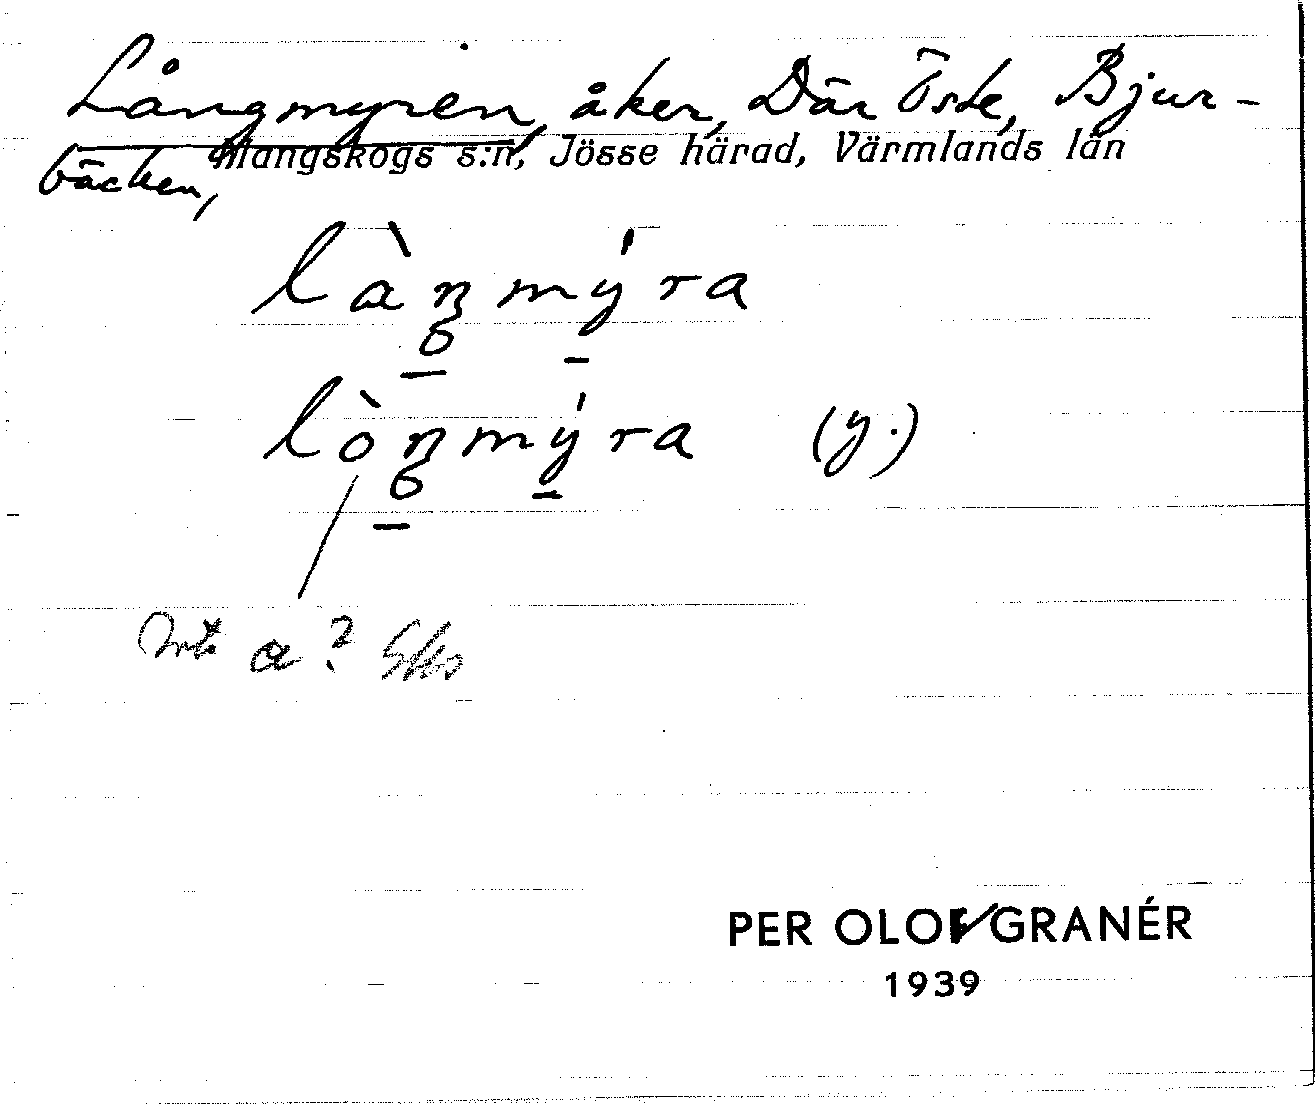 Långmyren, åker, Där Öste, Bjur-
Mangskogs s:n, Jösse härad, Värmlands län
bäcken,
làŋmýra
lòŋmýra (y.)
a?
PER OLOF GRANÉR
1939